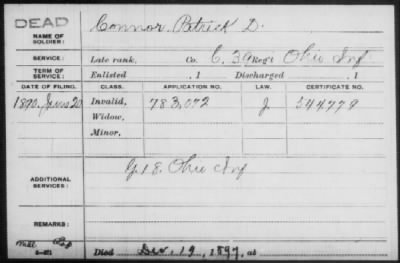 DEAD
NAME OF SOLDIER: Connor, Patrick D.
SERVICE: Late rank, Co. C, 39 Reg't Ohio Inf
TERM OF SERVICE: Enlisted , 1 Discharged , 1
DATE OF FILING. CLASS. APPLICATION NO. LAW. CERTIFICATE NO.
1890, June 20 Invalid, 783,072 J 544779
Widow,
Minor,
ADDITIONAL SERVICES: G 18. Ohio Inf
REMARKS:
3-271
Died Dec. 19, 1897, at